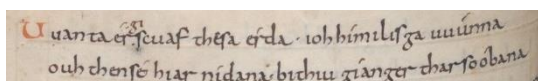 Uuanta er giscuaf thesa erda · ioh himilisga uuúnna
ouh thensé hiar nidana · bithiu gianger thar so óbana